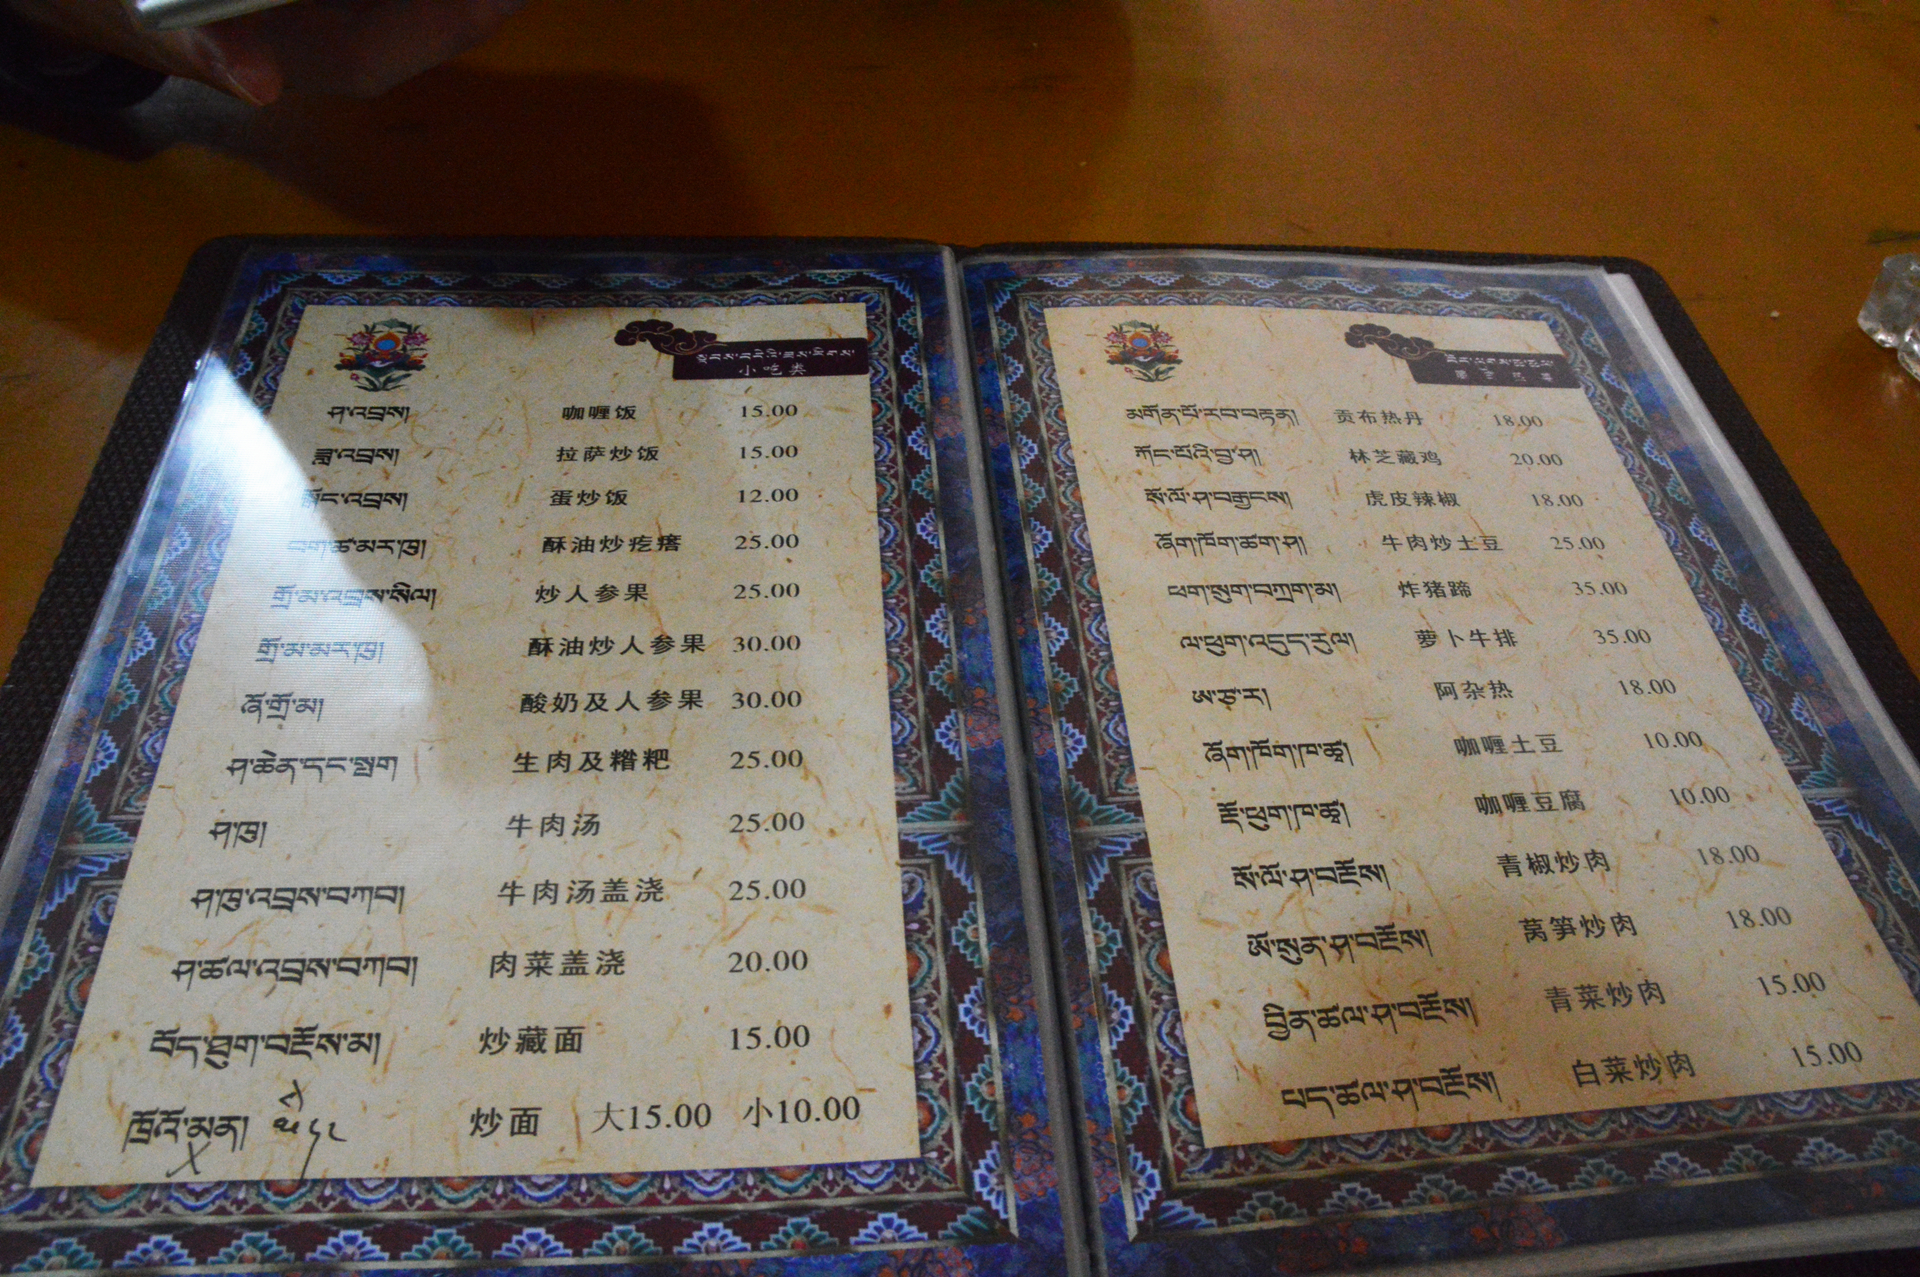 小吃类
ཤ་འབྲས། 咖喱饭 15.00
ཟླ་འབྲས། 拉萨炒饭 15.00
སྒོང་འབྲས། 蛋炒饭 12.00
བག་ཚ་མར་ཁུ། 酥油炒疙瘩 25.00
གྲོ་མ་འབྲས་སིལ། 炒人参果 25.00
གྲོ་མ་མར་ཁུ། 酥油炒人参果 30.00
ཞོ་གྲོ་མ། 酸奶及人参果 30.00
ཤ་ཆེན་དང་སྤག 生肉及糌粑 25.00
ཤ་ཁུ། 牛肉汤 25.00
ཤ་ཁུ་འབྲས་བཀབ། 牛肉汤盖浇 25.00
ཤ་ཚལ་འབྲས་བཀབ། 肉菜盖浇 20.00
བོད་ཐུག་བརྔོས་མ། 炒藏面 15.00
ཁྲོའོ་མན། 炒面 大15.00 小10.00
མགོན་པོ་རབ་བརྟན། 贡布热丹 18.00
ཀོང་པོའི་བྱ་ཤ། 林芝藏鸡 20.00
སོ་ལོ་ཤ་བརྒྱངས། 虎皮辣椒 18.00
ཞོག་ཁོག་ཚག་ཤ། 牛肉炒土豆 25.00
ཕག་སུག་བཀྲག་མ། 炸猪蹄 35.00
ལ་ཕུག་འདུད་རུལ། 萝卜牛排 35.00
ཨ་ཙ་ར། 阿杂热 18.00
ཞོག་ཁོག་ཁ་ཚྭ། 咖喱土豆 10.00
རྡོ་ཕུག་ཁ་ཚྭ། 咖喱豆腐 10.00
སོ་ལོ་ཤ་བརྔོས། 青椒炒肉 18.00
ཨོ་སུན་ཤ་བརྔོས། 莴笋炒肉 18.00
ཁྲིན་ཚལ་ཤ་བརྔོས། 青菜炒肉 15.00
པད་ཚལ་ཤ་བརྔོས། 白菜炒肉 15.00